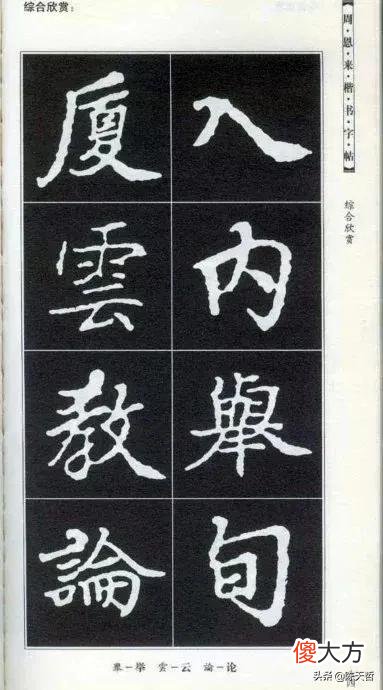 综合欣赏：
【周·恩·来·楷·书·字·帖】
综合欣赏
入内舉旬
厦雲教論
舉—举 雲—云 論—论
傻大方
头条 @陈天哲